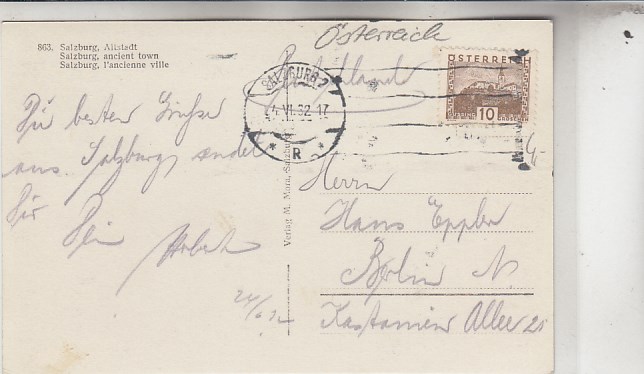 863. Salzburg, Altstadt
Salzburg, ancient town
Salzburg, l'ancienne ville
Österreich
Deutschland
ÖSTERREICH
10
SALZBURG 2
VI.32.17
* R *
Die besten Grüsse
aus Salzburg sendet
Dir
Dein
24/6 32
Verlag M. Mora, Salzburg
Herrn
Hans Eppler
Berlin N.
Kastanien Allee 25